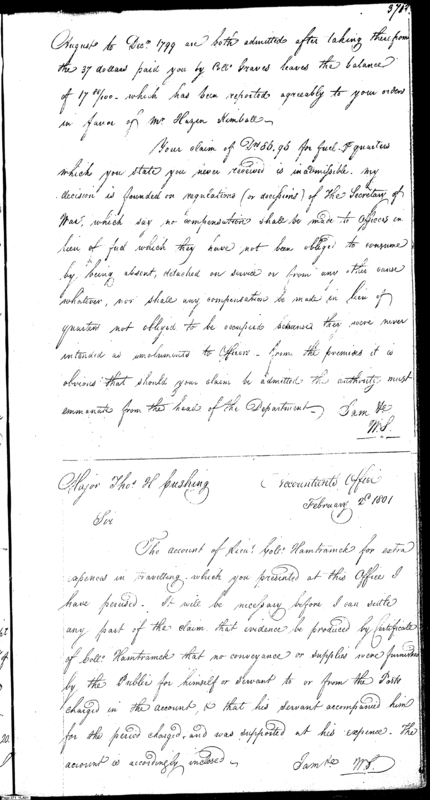 August to Decr. 1799 are both admitted after taking therefrom
the 37 dollars paid you by Colo. Graves leaves the balance
of 17 /100 - which has been reported agreeably to your orders
in favor of Mr. Hazen Kimball -
Your claim of Drs 55,95 for fuel & quarters
which you state you never received is inadmissible. my
decision is founded on regulations (or decisions) of the Secretary of
War, which say no compensation shall be made to Officers in
lieu of fuel which they have not been obliged to consume
by being absent, detached on service or from any other cause
whatever, nor shall any compensation be made in lieu of
quarters not obliged to be occupied because they were never
intended as emoluments to Officers - from the premises it is
obvious that should your claim be admitted the authority must
emmanate from the head of the Department - I am &c
W.S.
Major Thos. H Cushing
Accountants Office
February 2d 1801
Sir
The account of Lieut. Colo. Hamtramck for extra
expences in travelling which you presented at this Office I
have perused. It will be necessary before I can settle
any part of the claim that evidence be produced by Certificate
of Colo. Hamtramck that no conveyance or supplies were furnished
by the Public for himself or servant to or from the Posts
charged in the account & that his servant accompanied him
for the period charged, and was supported at his expence. The
account is accordingly inclosed -
I am &c W.S.